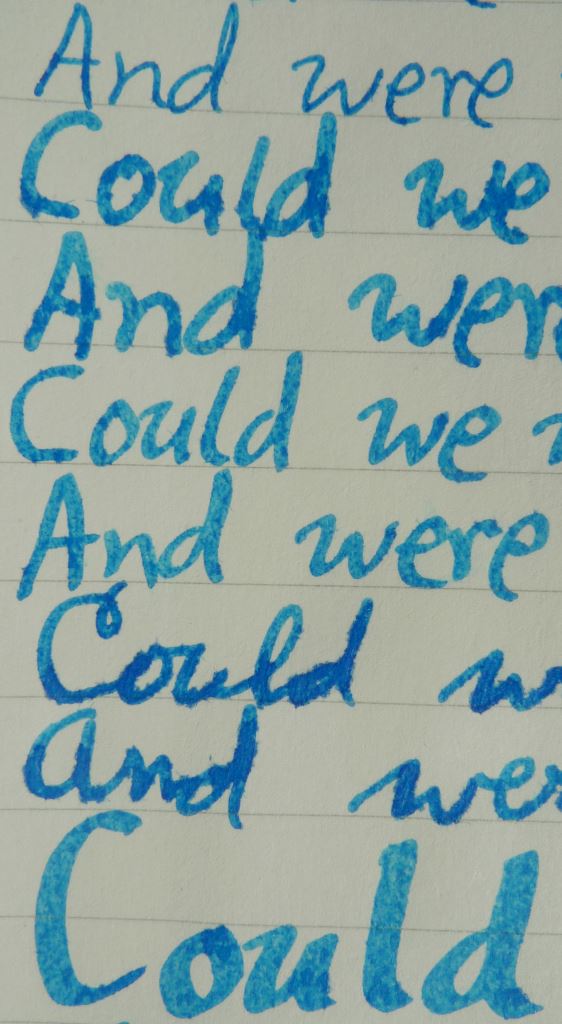 And were
Could we
And wer
Could we
And were
Could w
And wer
Could